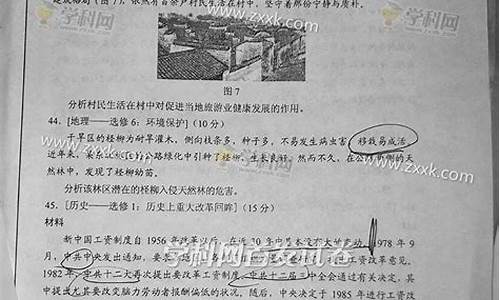 建成格局(图7),依然有百余户村民生活在村中,坚守着那份宁静与质朴。
图7
分析村民生活在村中对促进当地旅游业健康发展的作用。
44. [地理——选修6:环境保护] (10分)
干旱区的柽柳为耐旱灌木,侧向枝条多,种子多,不易发生病虫害,移栽易成活。
近年来,某
公路绿化中引种了柽柳,生长良好。然而不久,在公路
侧的天
然林中,发现了柽柳幼苗。
分析该林区潜在的柽柳入侵天然林的危害。
45. [历史——选修1:历史上重大改革回眸] (15分)
材料
新中国工资制度自1956年改革以后,在近30年中基本没有大的变动。1978年9
月,中共中央发出通知,要
工资改革意见。
1982年,中共十二大再次提出要改革工资制度,中共十二届三中全会通过有关决定,其
中提出尤其要改变脑力劳动者报酬偏低的状况。随后,中央决定于1985年进行工资改
学科网
www.zxxk.com
学科网
www.zxxk.com
www.zxxk.com
www.zxxk.com
学科网首发试卷